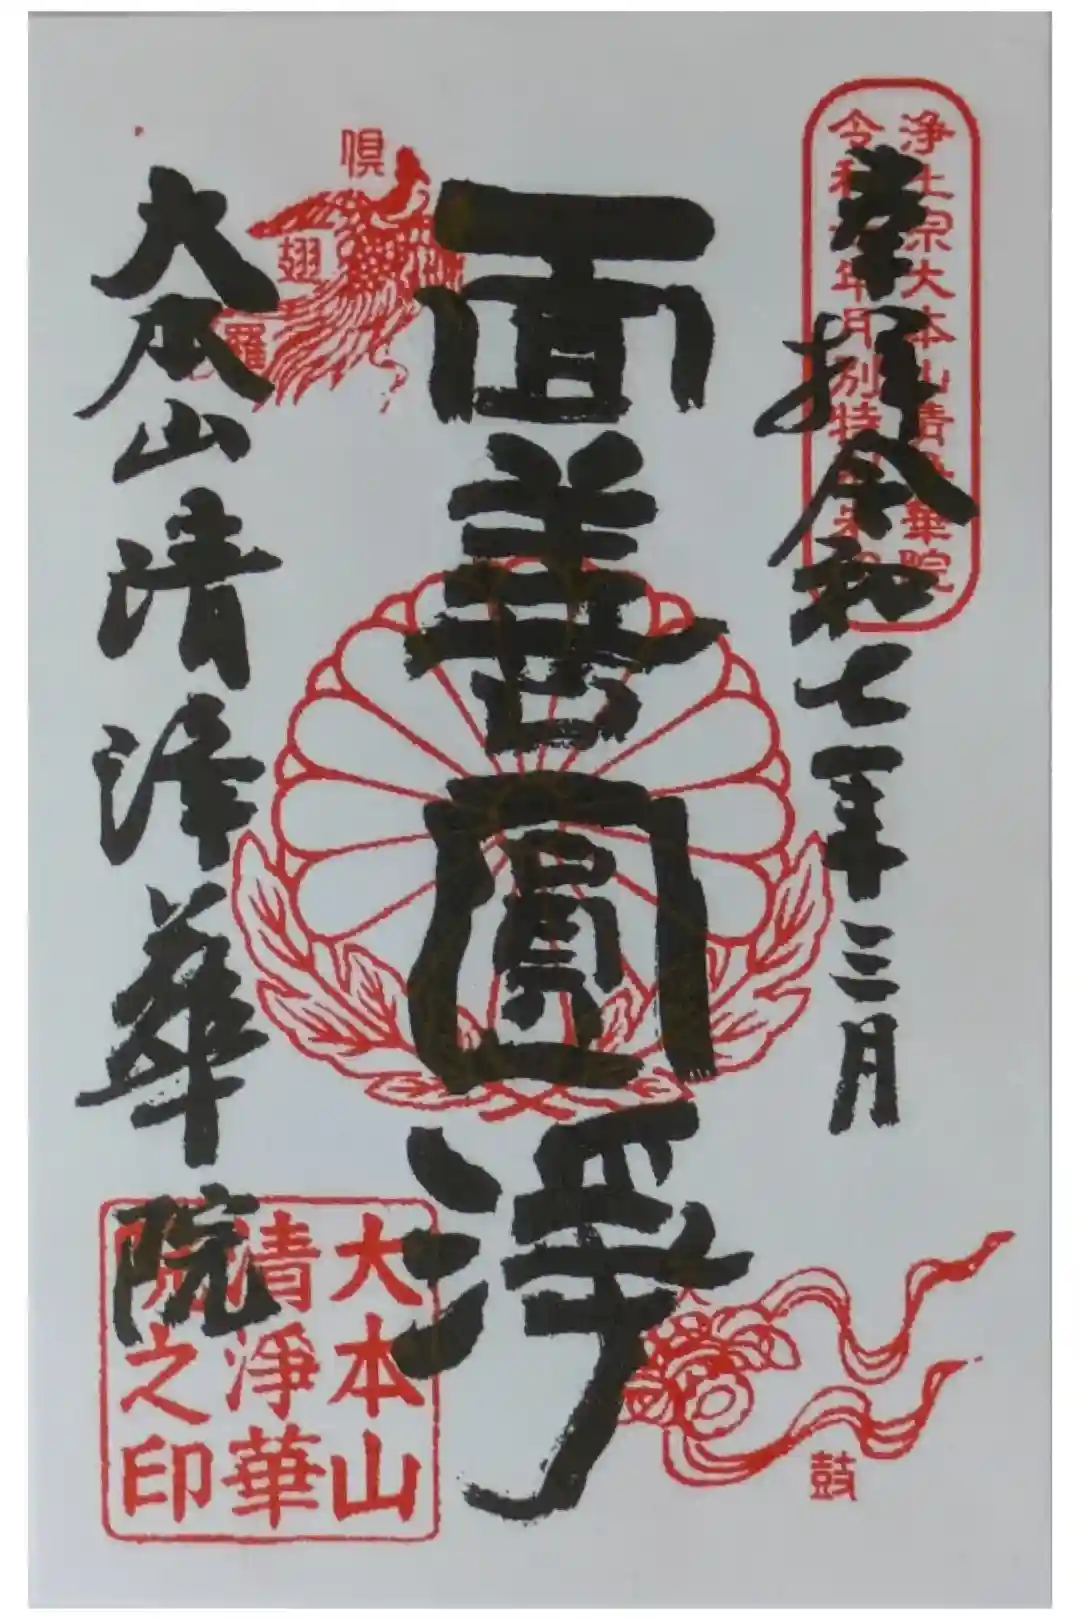 奉拝 令和七年三月
浄土宗大本山清浄華院
令和 年 月別特別
面善圓淨
倶
翅
羅
大本山清浄華院
大本山
清淨華
院之印
天
鼓